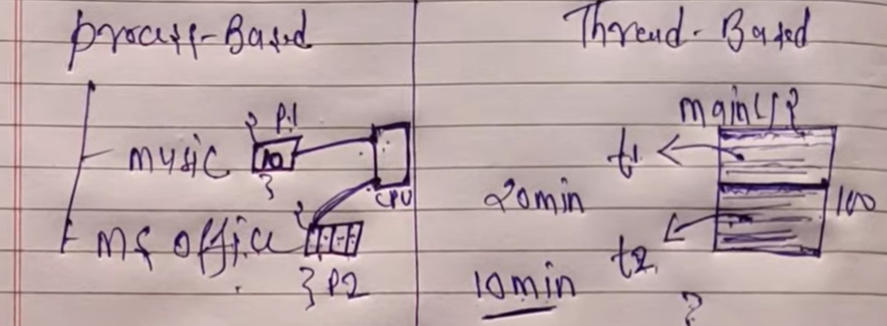 Process-Based
P.1
music
CPU
MS office
P2
Thread-Based
main() {
t1
20min
100
t2
10min
}